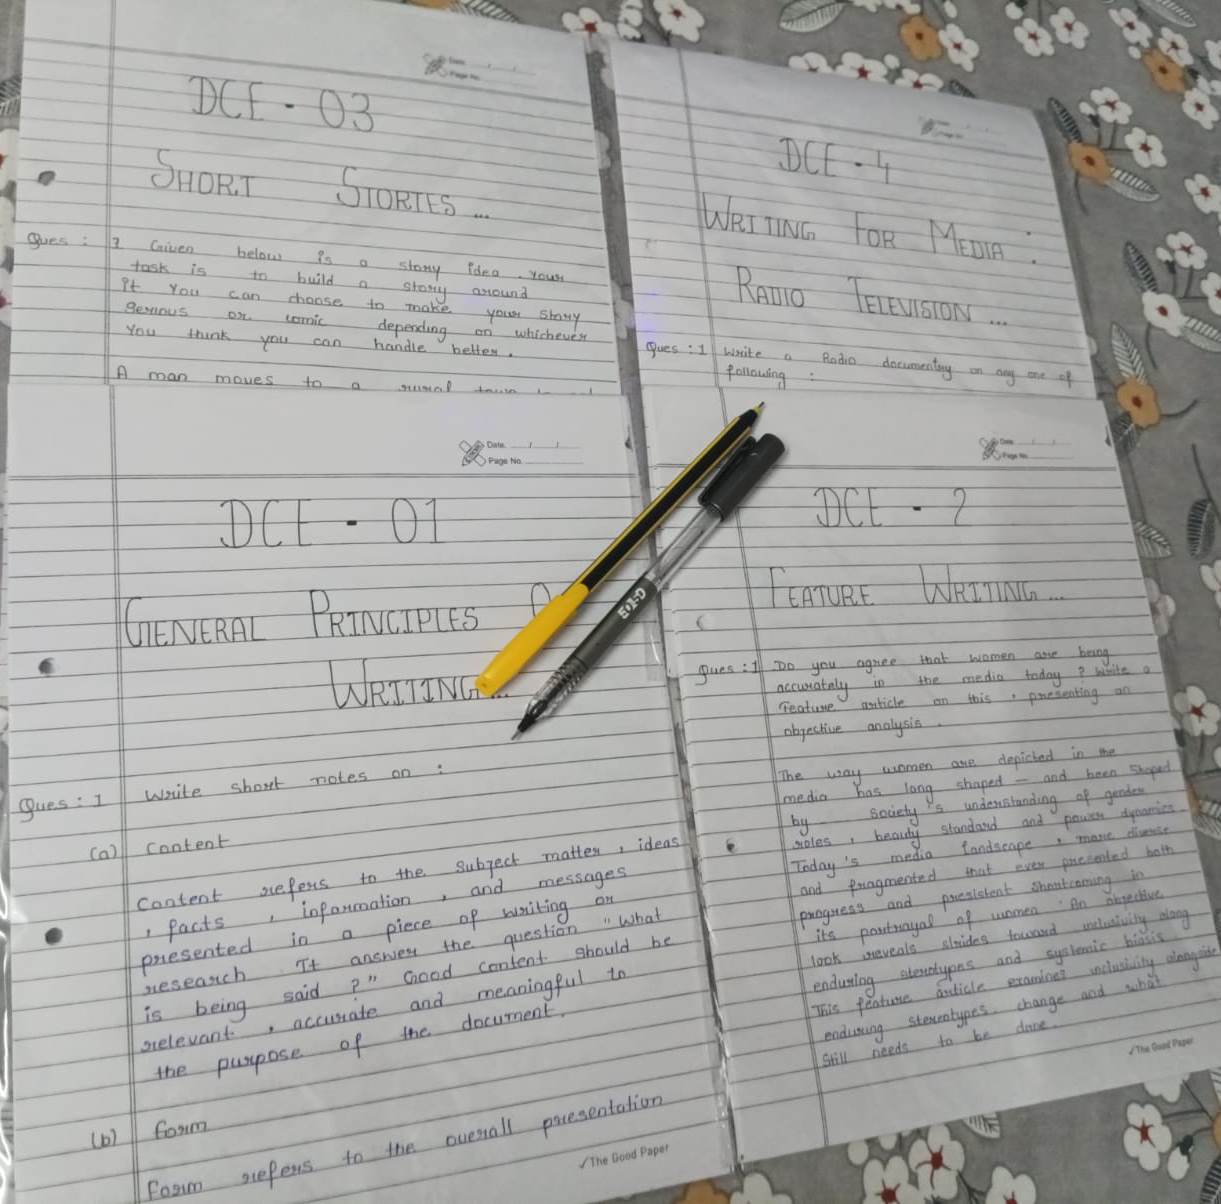 Date
Page No.
DCE - 03
SHORT STORIES ...
Ques : 1 Given below is a story idea. Your
task is to build a story around
it You can choose to make your story
serious or comic depending on whichever
You think you can handle better.
A man moves to a rural town
DCE - 4
WRITING FOR MEDIA :
RADIO TELEVISION ...
Ques : 1 Write a Radio documentary on any one of
following :
Date.
Page No.
DCE - 01
GENERAL PRINCIPLES
WRITING...
Ques : 1 Write short notes on :
(a) Content
Content refers to the subject matter, ideas
, facts , information , and messages
presented in a piece of writing or
research It answer the question "What
is being said ?" Good content should be
relevant , accurate and meaningful to
the purpose of the document.
(b) Form
Form refers to the overall presentation
✓The Good Paper
SOLO
Date
Page No.
DCE - 2
FEATURE WRITING...
Ques : 1 Do you agree that women are being
accurately in the media today ? Write a
Feature article on this , presenting an
objective analysis.
The way women are depicted in the
media has long shaped – and been shaped
by society's understanding of gender
roles , beauty standard and power dynamics
Today's media landscape , more diverse
and fragmented that ever presented both
progress and presistent shortcoming in
its portrayal of women. An objective
look reveals strides toward inclusivity along
enduring stereotypes and systemic biasis
This feature article examines inclusivity alongside
enduring stereotypes. change and what
still needs to be done.
✓The Good Paper